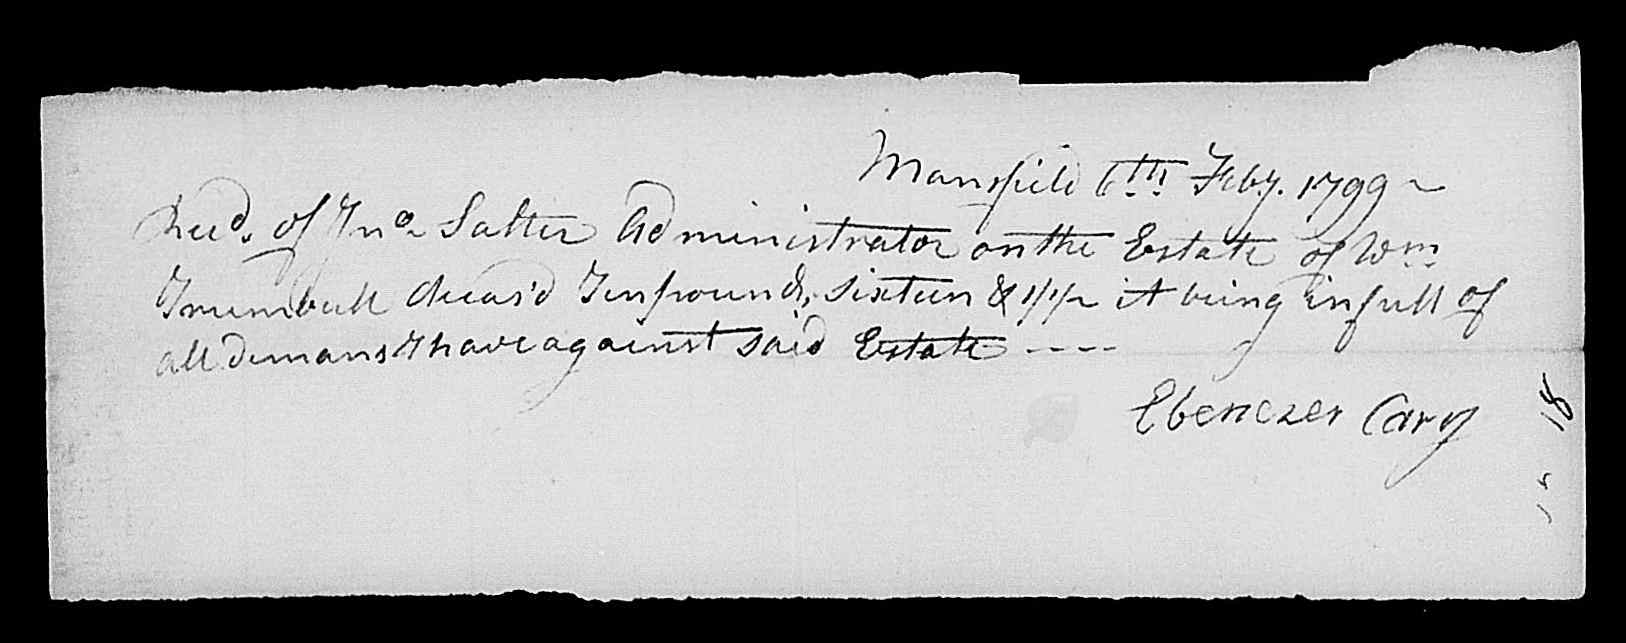 Mansfield 6th Feby. 1799
Recd. of Jno Salter Administrator on the Estate of Wm
Trumbull deceas'd Ten pounds, sixteen & 1/1/2 it being in full of
all demans I have against said Estate ----
Ebenezer Cary